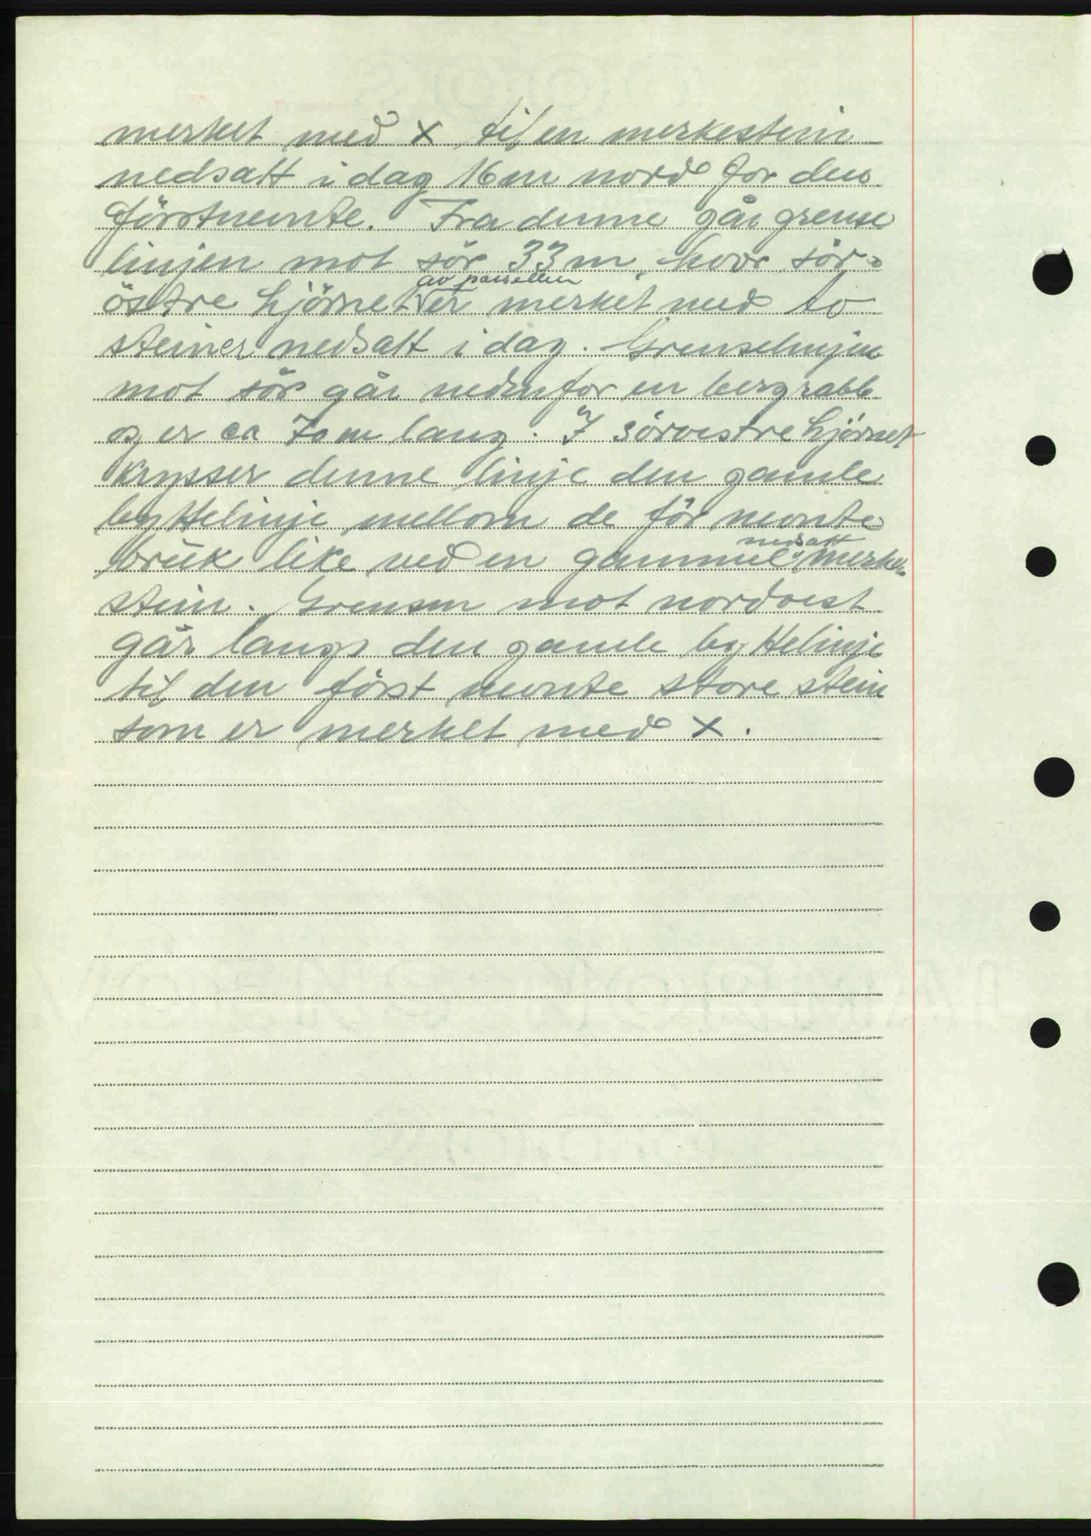 merket med x til en merkestein
nedsatt i dag 16 m nord for den
förstnevnte. Fra denne går grense
linjen mot sör 33 m, hvor sör-
av parsellen
östre hjörnet er merket med to
steiner nedsatt i dag. Grenselinjen
mot sör går nedenfor en bergrabb
og er ca 70 m lang. I sörvestre hjörnet
krysser denne linje den gamle
byttelinje mellom de för nevnte
nedsatt
bruk like ved en gammel merke-
stein. Grensen mot nordvest
går langs den gamle byttelinje
til den först nevnte store stein
som er merket med x.